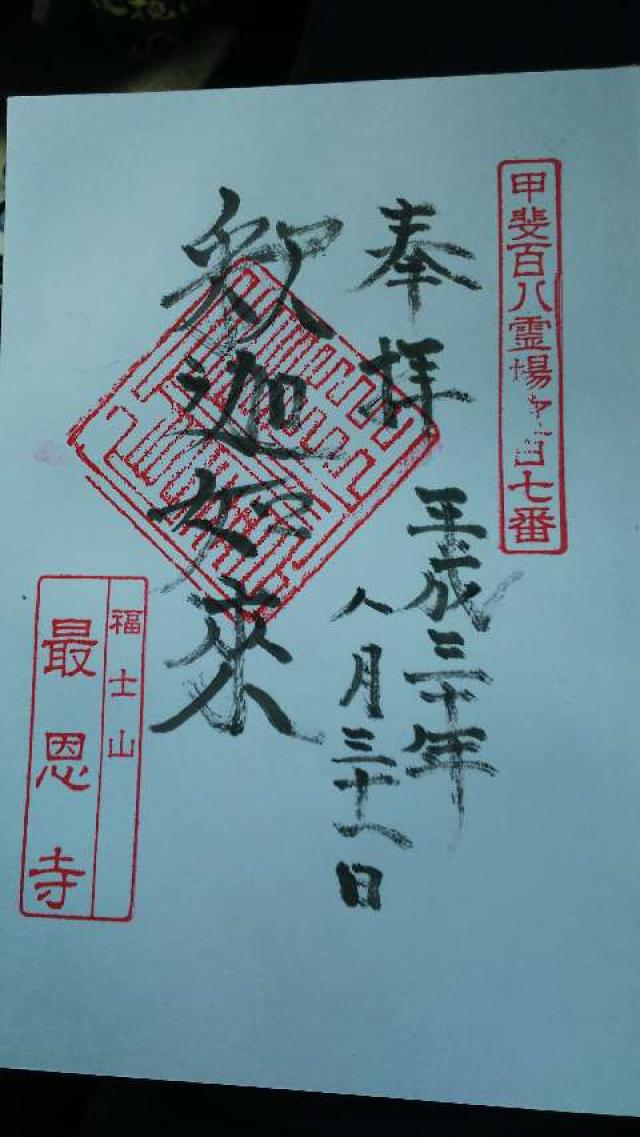 甲斐百八霊場第百七番
奉拝
平成三十年
八月三十一日
釈迦如來
福士山
最恩寺